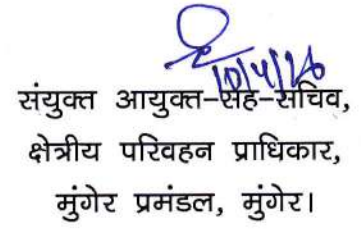 10/4/26
संयुक्त आयुक्त-सह-सचिव,
क्षेत्रीय परिवहन प्राधिकार,
मुंगेर प्रमंडल, मुंगेर।